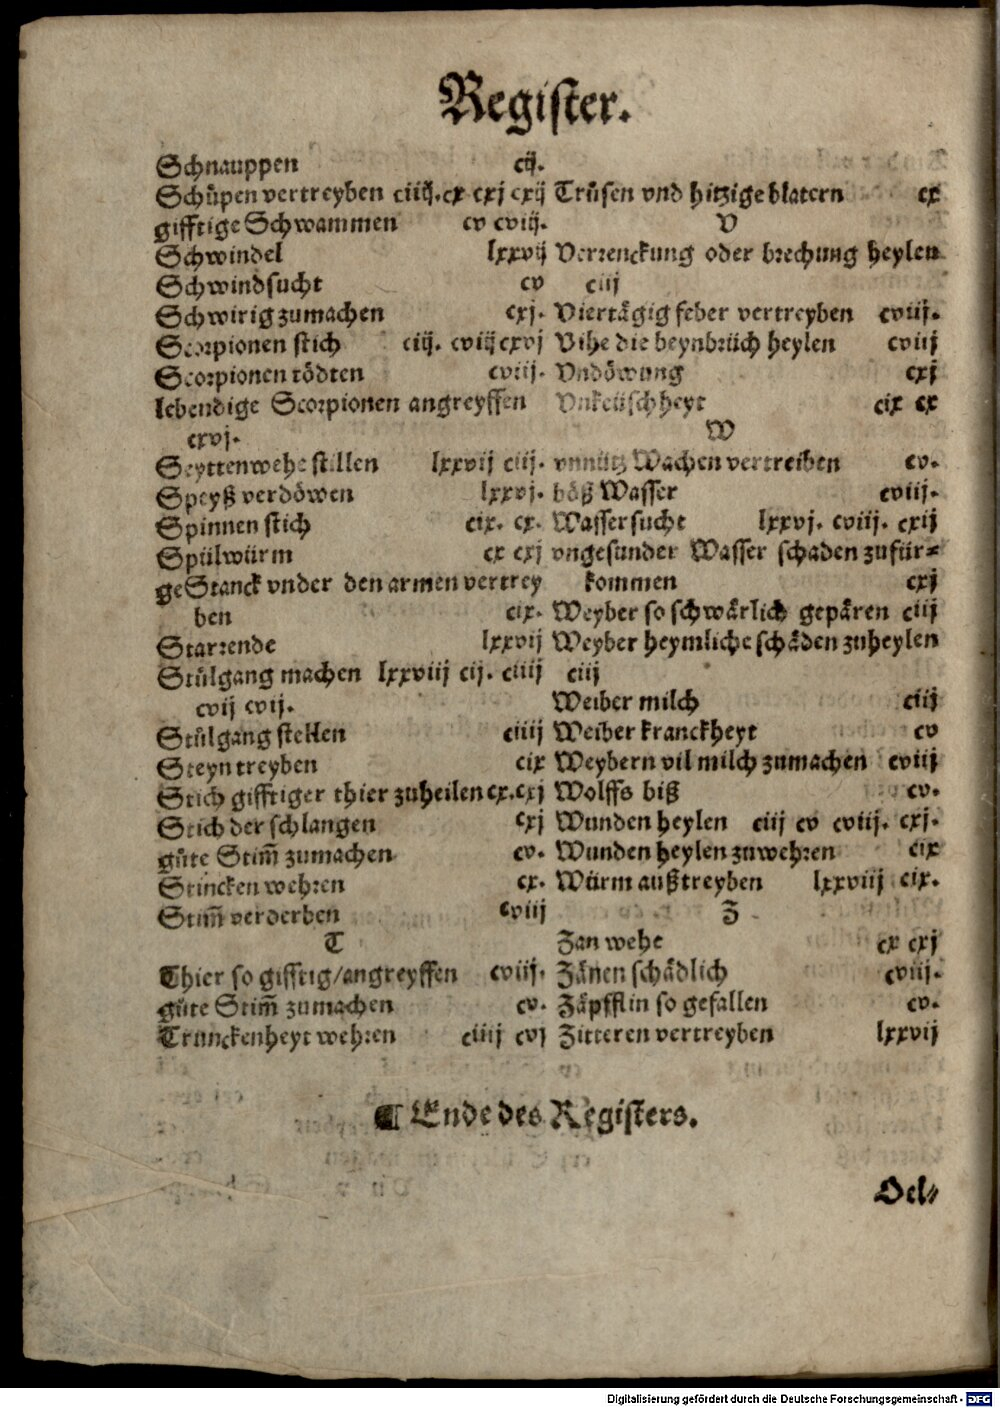 Register.
Schnauppen cij.
Schůpen vertreyben ciiij. cx cxj cxij
gifftige Schwammen cv cviij.
Schwindel lxxvij
Schwindsucht cv
Schwirig zumachen cxj.
Scorpionen stich ciij. cviij cxvj
Scorpionen tödten cviij.
lebendige Scorpionen angreyffen
cxvj.
Seyttenwehe stillen lxxvij ciij.
Speyß verdöwen lxxvj.
Spinnen stich cix. cx.
Spülwürm cx cxj
geStanck vnder den armen vertrey
ben cix.
Starrende lxxvij
Stůlgang machen lxxviij cij. ciiij
cvij cvij.
Stůlgang stellen ciiij
Steyn treyben cix
Stich gifftiger thier zuheilen cx. cxj
Stich der schlangen cxj
gůte Stim̃ zumachen cv.
Stincken wehren cx.
Stim̃ verderben cviij
T
Thier so gifftig/angreyffen cviij.
gůte Stim̃ zumachen cv.
Trunckenheyt wehren ciiij cvj
Trůsen vnd hitzige blatern cx
V
Verrenckung oder brechung heylen
ciij
Viertägig feber vertreyben cviij.
Vihe die beynbrüch heylen cviij
Vndöwung cxj
Vnkeüschheyt cix cx
W
vnnütz Wachen vertreiben cv.
böß Wasser cviij.
Wassersucht lxxvj. cviij. cxij
vngesunder Wasser schaden zufür=
kommen cxj
Weyber so schwärlich gepären ciij
Weyber heymliche schäden zuheylen
ciij
Weiber milch ciij
Weiber kranckheyt cv
Weybern vil milch zumachen cviij
Wolffs biß cv.
Wunden heylen ciij cv cviij. cxj.
Wunden heylen zuwehren cix
Würm außtreyben lxxviij cix.
Z
Zan wehe cx cxj
Zänen schädlich cviij.
Zäpfflin so gefallen cv.
Zitteren vertreyben lxxvij
¶ Ende des Registers.
Oel⸗
Digitalisierung gefördert durch die Deutsche Forschungsgemeinschaft - DFG